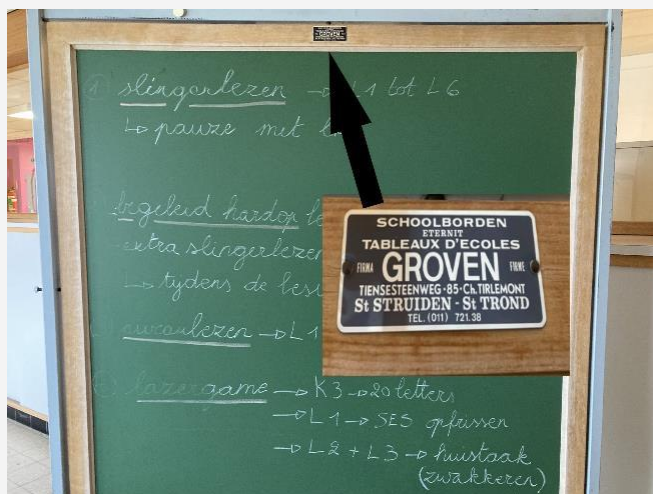 ① slingerlezen → L1 tot L6
↳ pauze met
begeleid hardop
extra slingerlezen
→ tijdens de
→ L1
lazergame → K3 → 20 letters
→ L1 → SES opfrissen
→ L2 + L3 → huistaak
(zwakkeren)
SCHOOLBORDEN
ETERNIT
TABLEAUX D'ECOLES
FIRMA GROVEN FIRME
TIENSESTEENWEG·85·Ch.TIRLEMONT
St STRUIDEN - St TROND
TEL. (011) 721.38